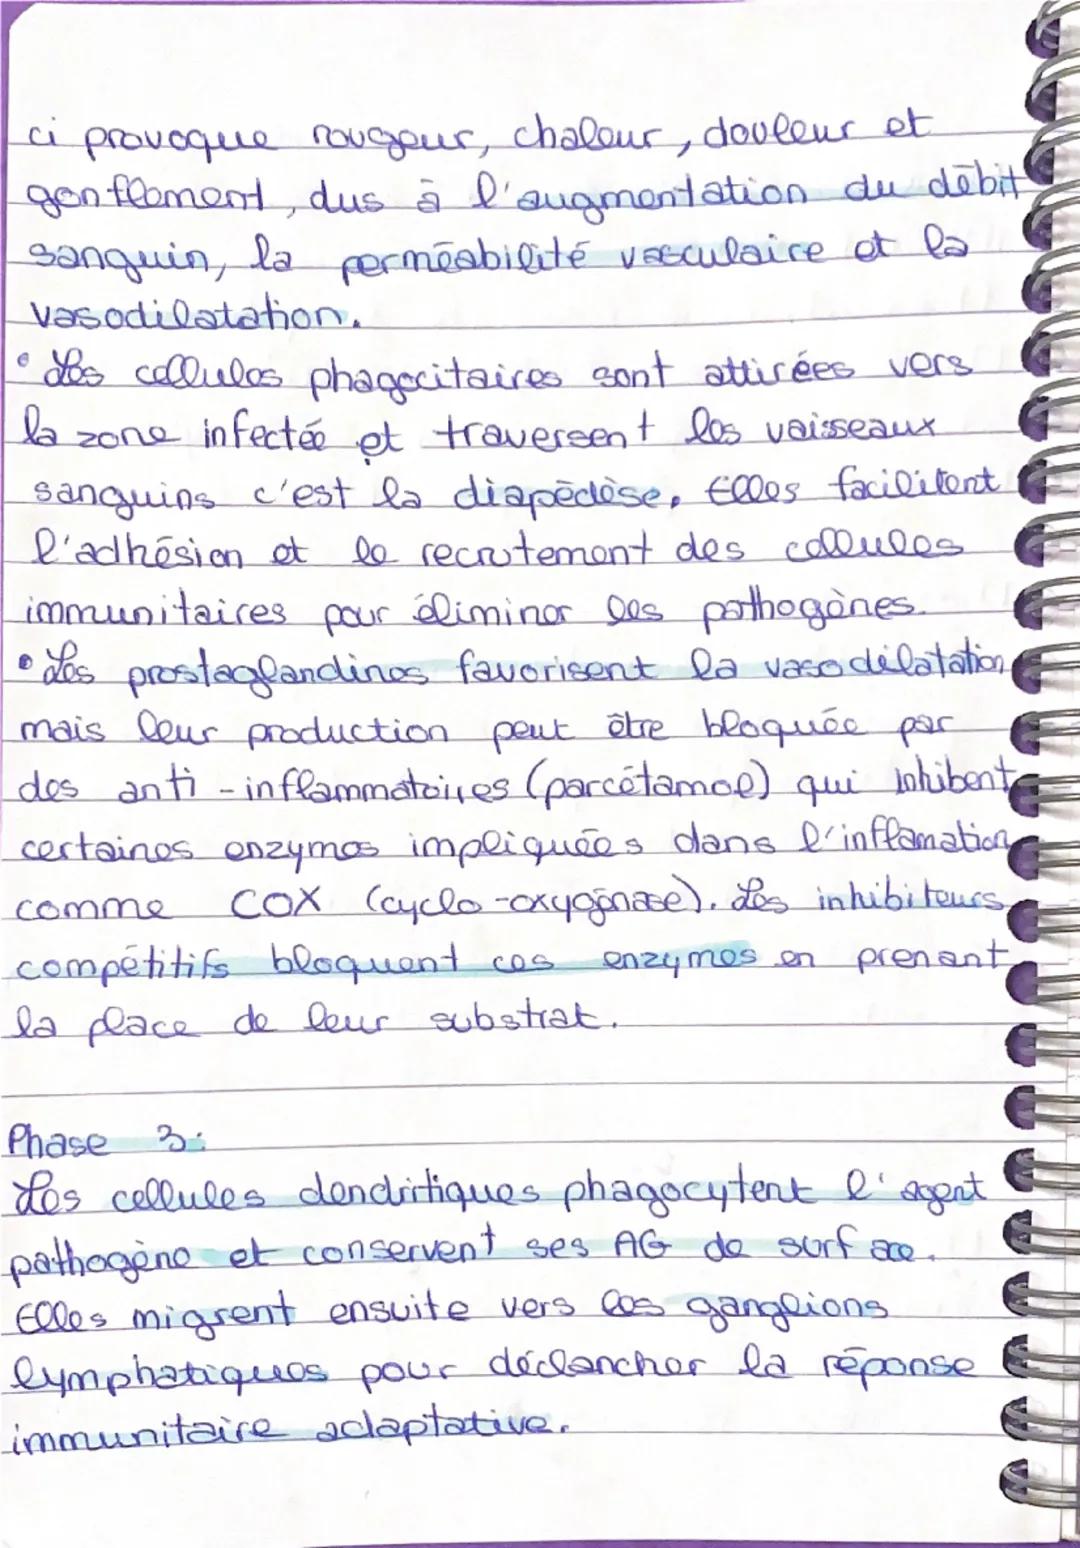 ci provoque rougeur, chaleur, douleur et
gonflement, dus à l'augmentation du débit
sanguin, la perméabilité vasculaire et la
vasodilatation.
• Les cellules phagocitaires sont attirées vers
la zone infectée et traversent les vaisseaux
sanguins c'est la diapédèse. Elles facilitent
l'adhésion et le recrutement des cellules
immunitaires pour éliminer les pathogènes.
• Les prostaglandines favorisent la vasodilatation
mais leur production peut être bloquée par
des anti-inflammatoires (parcétamol) qui inhibent
certaines enzymes impliquées dans l'inflamation
comme COX (cyclo-oxygénase). Les inhibiteurs
compétitifs bloquent ces enzymes en prenant
la place de leur substrat.
Phase 3:
Les cellules dendritiques phagocytent l'agent
pathogène et conservent ses AG de surface.
Elles migrent ensuite vers les ganglions
lymphatiques pour déclancher la réponse
immunitaire adaptative.